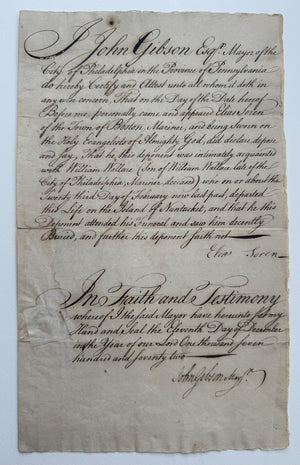 I John Gibson Esqr. Mayor of the
City of Philadelphia in the Province of Pennsylvania
do hereby Certify and Attest unto all whom it doth in
any wise concern, That on the Day of the Date hereof
Before me, personally came and appeared Elias Soren
of the Town of Boston, Mariner, and being Sworn on
the Holy Evangelists of Almighty God, did declare depose
and say, That he, this deponent was intimately acquainted
with William Wallace (Son of William Wallace late of the
City of Philadelphia Mariner deceased) who on or about the
Twenty third Day of February now last past, departed
this Life on the Island of Nantucket, and that he this
Deponent attended his Funeral and saw him decently
Buried, and further this deponent saith not
Elias Soren
In Faith and Testimony
whereof I the said Mayor have hereunto set my
Hand and Seal the Eleventh Day of December
in the Year of our Lord One thousand seven
hundred and seventy two
John Gibson Mayr.